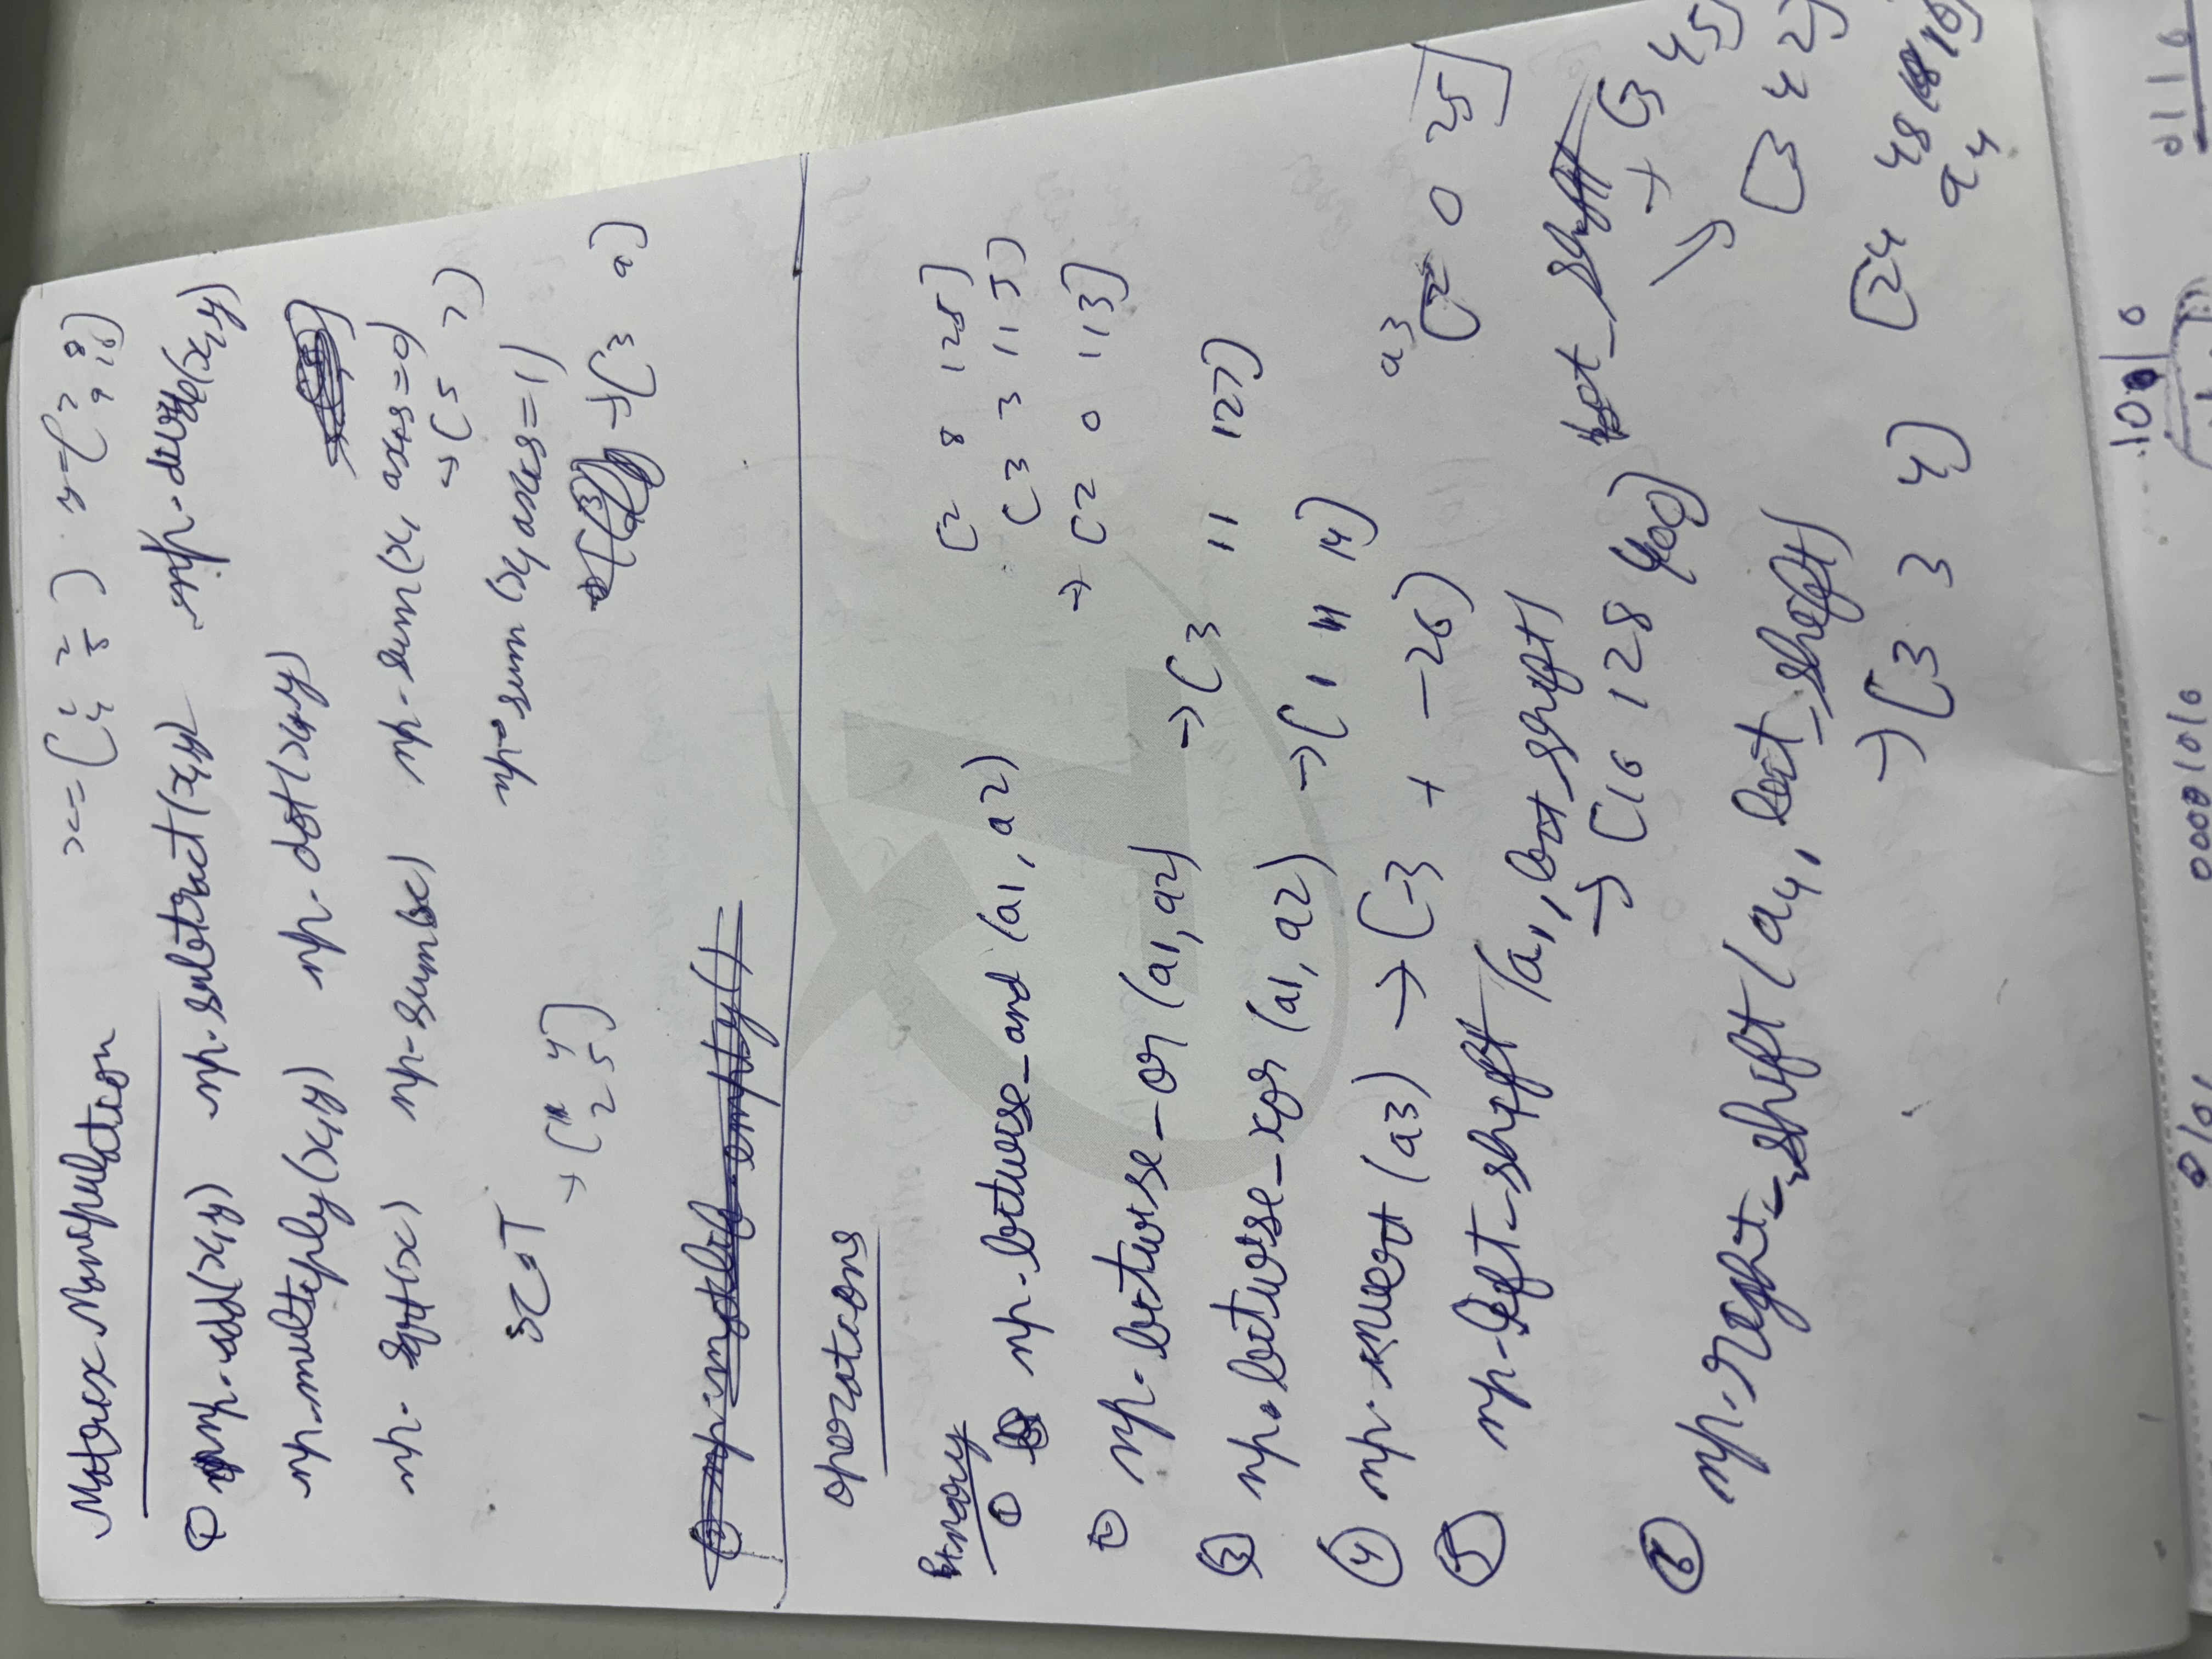 Matrix Manipulation
x = [1 2
4 5] y = [7 8
9 10]
① np.add(x,y) np.subtract(x,y) np.divide(x,y)
np.multiply(x,y) np.dot(x,y)
np.sqrt(x) np.sum(x) np.sum(x, axis=0)
→ [5 7]
x.T np.sum(x, axis=1)
→ [1 4
2 5]
→ [3 9]
② np.matlib.empty()
Operations
Binary
① np.bitwise_and (a1, a2)
[2 8 125]
[3 3 115]
→ [2 0 113]
② np.bitwise_or (a1, a2) → [3 11 127]
③ np.bitwise_xor (a1, a2) → [1 11 14]
④ np.invert (a3) → [-3 + -26]
a3
[2 0 25]
⑤ np.left_shift (a1, bit_shift)
→ [16 128 400]
bit_shift → [3 4 5]
[3 4 2]
⑥ np.right_shift (a4, bit_shift)
→ [3 3 4]
[24 48 16]
a4
10010
0101
00001010
0110